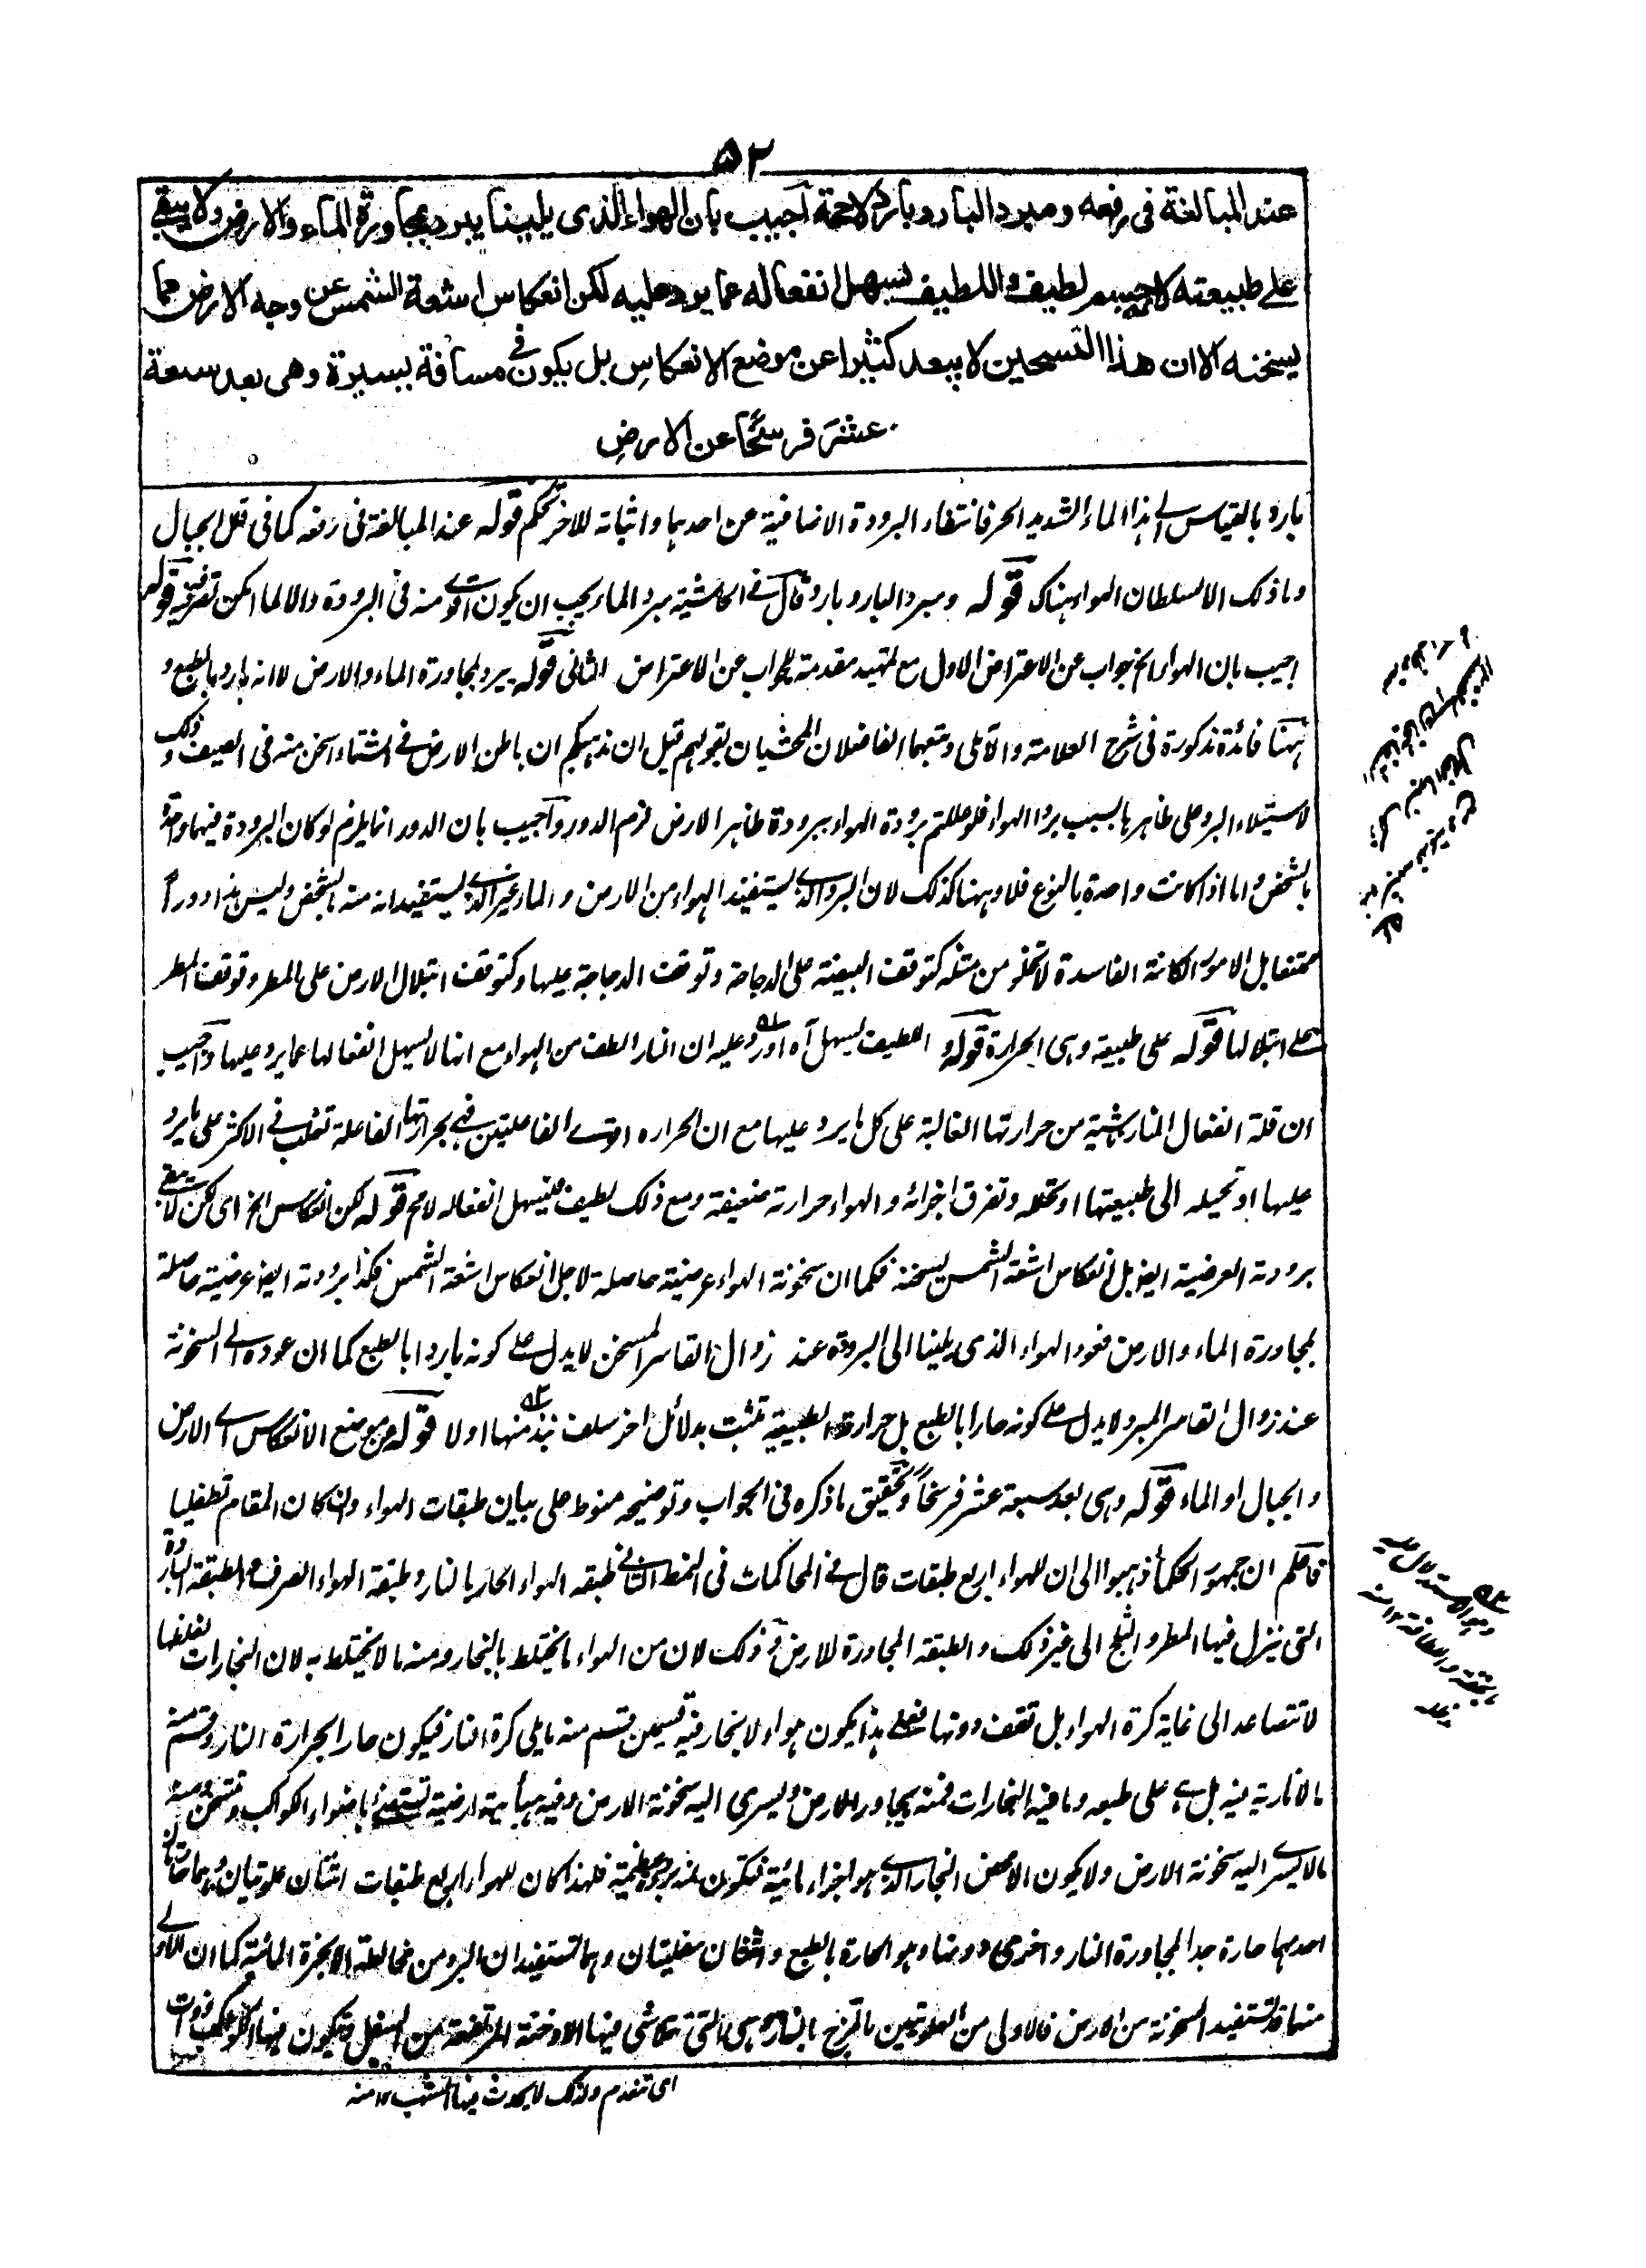 ٥٢
عند المبالغة فى رفعه ومبرد البارد بارد لا محة اجيب بان الهواء الذى يلينا يبرد بمجاورة الماء والارض ولا يبقى
على طبيعته لانه جسم لطيف واللطيف يسهل انفعاله عما يرد عليه لكن انعكاس اشعة الشمس عن وجه الارض مما
يسخنه الا ان هذا التسخين لا يبعد كثيرا عن موضع الانعكاس بل يكون فى مسافة يسيرة وهى بعد سبعة
عشر فرسخا عن الارض
بارد بالقياس الى هذا الماء الشديد الحر فانتفاء البرودة الاضافية عن احدهما واثباته للاخر تحكم قوله عند المبالغة فى رفعه كما فى قلل الجبال
وما ذلك الا لسلطان الهواء هناك قوله ومبرد البارد بارد قال فى الحاشية مبرد الماء يجب ان يكون اقوى منه فى البرودة والا لما امكن تفريقه قوله
اجيب بان الهواء الخ جواب عن الاعتراض الاول مع تمهيد مقدمة للجواب عن الاعتراض الثانى قوله يبرد لمجاورة الماء والارض لا انه بارد بالطبع و
ههنا فائدة مذكورة فى شرح العلامة والآملى وتبعهما الفاضلان المحشيان بقولهم قيل ان مذهبكم ان باطن الارض فى الشتاء اسخن منه فى الصيف وذلك
لاستيلاء البرد على ظاهرها بسبب برد الهواء فلو عللتم برودة الهواء ببرودة ظاهر الارض لزم الدور واجيب بان الدور انما يلزم لو كان البرودة فيهما واحدة
بالشخص واما اذا كانت واحدة بالنوع فلا وههنا كذلك لان البرد الذى يستفيد الهواء من الارض والماء غير الذى يستفيدانه منه بالشخص وليس هذا دورا
ممتنعا بل الامور الكائنة الفاسدة لا تخلو من مثله كتوقف البيضة على الدجاجة وتوقف الدجاجة عليها وكتوقف ابتلال الارض على المطر وتوقف المطر
على ابتلالها قوله على طبيعته وهى الحرارة قوله واللطيف يسهل آه اورد عليه ان النار الطف من الهواء مع انها لا يسهل انفعالها عما يرد عليها واجيب
ان قلة انفعال النار ناشية من حرارتها الغالبة على كل ما يرد عليها مع ان الحرارة اقوى الفاعليتين فهى بحرارتها الفاعلة تغلب فى الاكثر على ما يرد
عليها او تحيله الى طبيعتها او تحلله وتفرق اجزائه والهواء حرارته ضعيفة ومع ذلك لطيف فيسهل انفعاله لا مح قوله لكن انعكاس الخ اى لكن لا يبقى
برودته العرضية ايضا بل انعكاس اشعة الشمس يسخنه فكما ان سخونة الهواء عرضية حاصلة لاجل انعكاس اشعة الشمس فكذا برودته ايضا عرضية حاصلة
لمجاورة الماء والارض فعود الهواء الذى يلينا الى البرودة عند زوال القاسر المسخن لا يدل على كونه باردا بالطبع كما ان عوده الى السخونة
عند زوال القاسر المبرد لا يدل على كونه حارا بالطبع بل حرارته الطبيعية تثبت بدلائل اخر سلف نبذ منها اولا قوله من موضع الانعكاس اى الارض
والجبال او الماء قوله وهى بعد سبعة عشر فرسخا وتحقيق ما ذكره فى الجواب وتوضيحه منوط على بيان طبقات الهواء وان كان المقام تطفليا
فاعلم ان جمهور الحكماء ذهبوا الى ان للهواء اربع طبقات قال فى المحاكمات فى النمط الثانى طبقه الهواء الحار بالنار وطبقة الهواء الصرف والطبقة الباردة
التى ينزل فيها المطر والثلج الى غير ذلك والطبقة المجاورة للارض وذلك لان من الهواء ما يختلط بالبخار ومنه ما لا يختلط به لان البخارات لغلظها
لا تتصاعد الى غاية كرة الهواء بل تقف دونها فعلى هذا يكون هواء لا بخار فيه قسمين قسم منه ما يلى كرة النار فيكون حارا لحرارة النار وقسم منه
ما لا نارية فيه بل هى على طبعه وما فيه البخارات فمنه يجاور الارض ويسرى اليه سخونة الارض وفيه هبائية ارضية تستضئ باضواء الكواكب وتسخن ومنه
ما لا يسرى اليه سخونة الارض ولا يكون الا محض البخار الذى هو اجزاء مائية فتكون له برودة عظيمة فلهذا كان للهواء اربع طبقات اثنتان علويتان وهما حارتان
احدهما حارة جدا لمجاورة النار واخرى دونها وهو الحارة بالطبع واثنان سفليتان وهما تستفيدان البرد من مخالطة الابخرة المائية كما ان الاولى
منهما قد تستفيد السخونة من الارض فالاولى من العلويتين ما تمتزج بالنار وهى التى تتلاشى فيها الادخنة المرتفعة من السفل وتتكون فيها الكواكب ذوات
اى تنعدم ولذلك لا يحدث فيها الشهب ١٢ منه